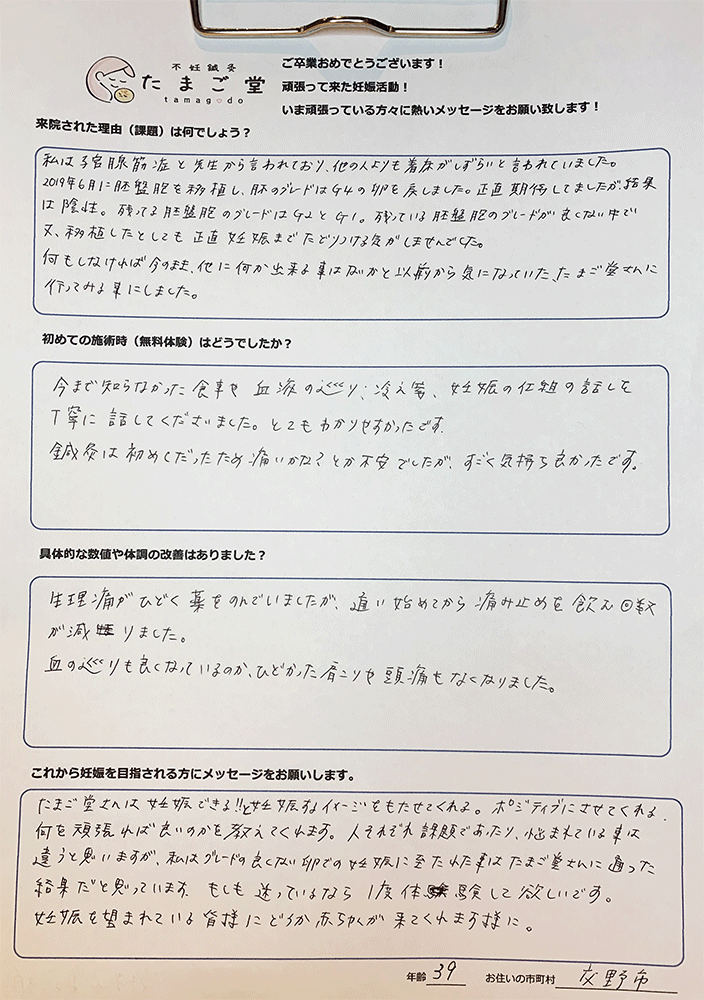 不妊鍼灸
たまご堂
tamago do
ご卒業おめでとうございます！
頑張って来た妊娠活動！
いま頑張っている方々に熱いメッセージをお願い致します！
来院された理由（課題）は何でしょう？
私は子宮腺筋症と先生から言われており、他の人よりも着床がしずらいと言われていました。
2019年6月に胚盤胞を移植し、胚のグレードはG4の卵を戻しました。正直期待してましたが、結果
は陰性。残ってる胚盤胞のグレードはG2とG1。残っている胚盤胞のグレードが良くない中で
又、移植したとしても正直妊娠までたどりつける気がしませんでした。
何もしなければ今のまま、他に何か出来る事はないかと以前から気になっていた、たまご堂さんに
行ってみる事にしました。
初めての施術時（無料体験）はどうでしたか？
今まで知らなかった食事や血液の巡り、冷え等、妊娠の仕組の話しを
丁寧に話してくださいました。とてもわかりやすかったです。
鍼灸は初めてだったため痛いかな？とか不安でしたが、すごく気持ち良かったです。
具体的な数値や体調の改善はありました？
生理痛がひどく薬をのんでいましたが、通い始めてから痛み止めを飲む回数
が減りました。
血の巡りも良くなっているのか、ひどかった肩こりや頭痛もなくなりました。
これから妊娠を目指される方にメッセージをお願いします。
たまご堂さんは妊娠できる!!と妊娠するイメージをもたせてくれる。ポジティブにさせてくれる。
何を頑張れば良いのかを教えてくれます。人それぞれ課題であたり、悩まれている事は
違うと思いますが、私はグレードの良くない卵での妊娠に至たれた事はたまご堂さんに通った
結果だと思っています。もしも迷っているなら1度体験して欲しいです。
妊娠を望まれている皆様にどうか赤ちゃんが来てくれます様に。
年齢 39 お住いの市町村 交野市